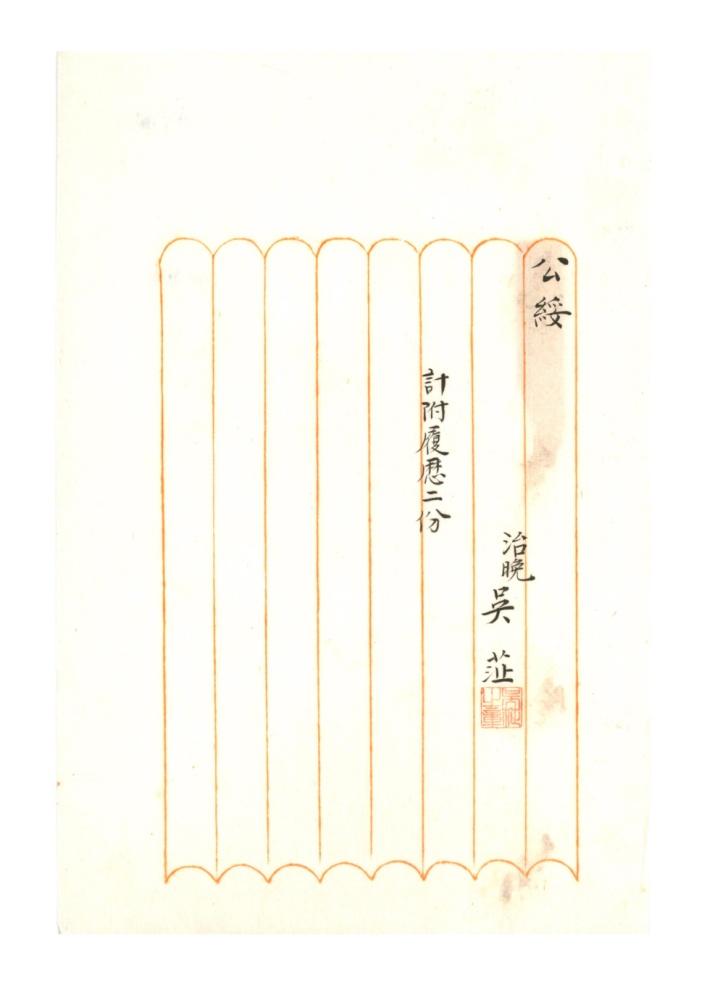 公綏
治晚吳茳
計附履歷二份